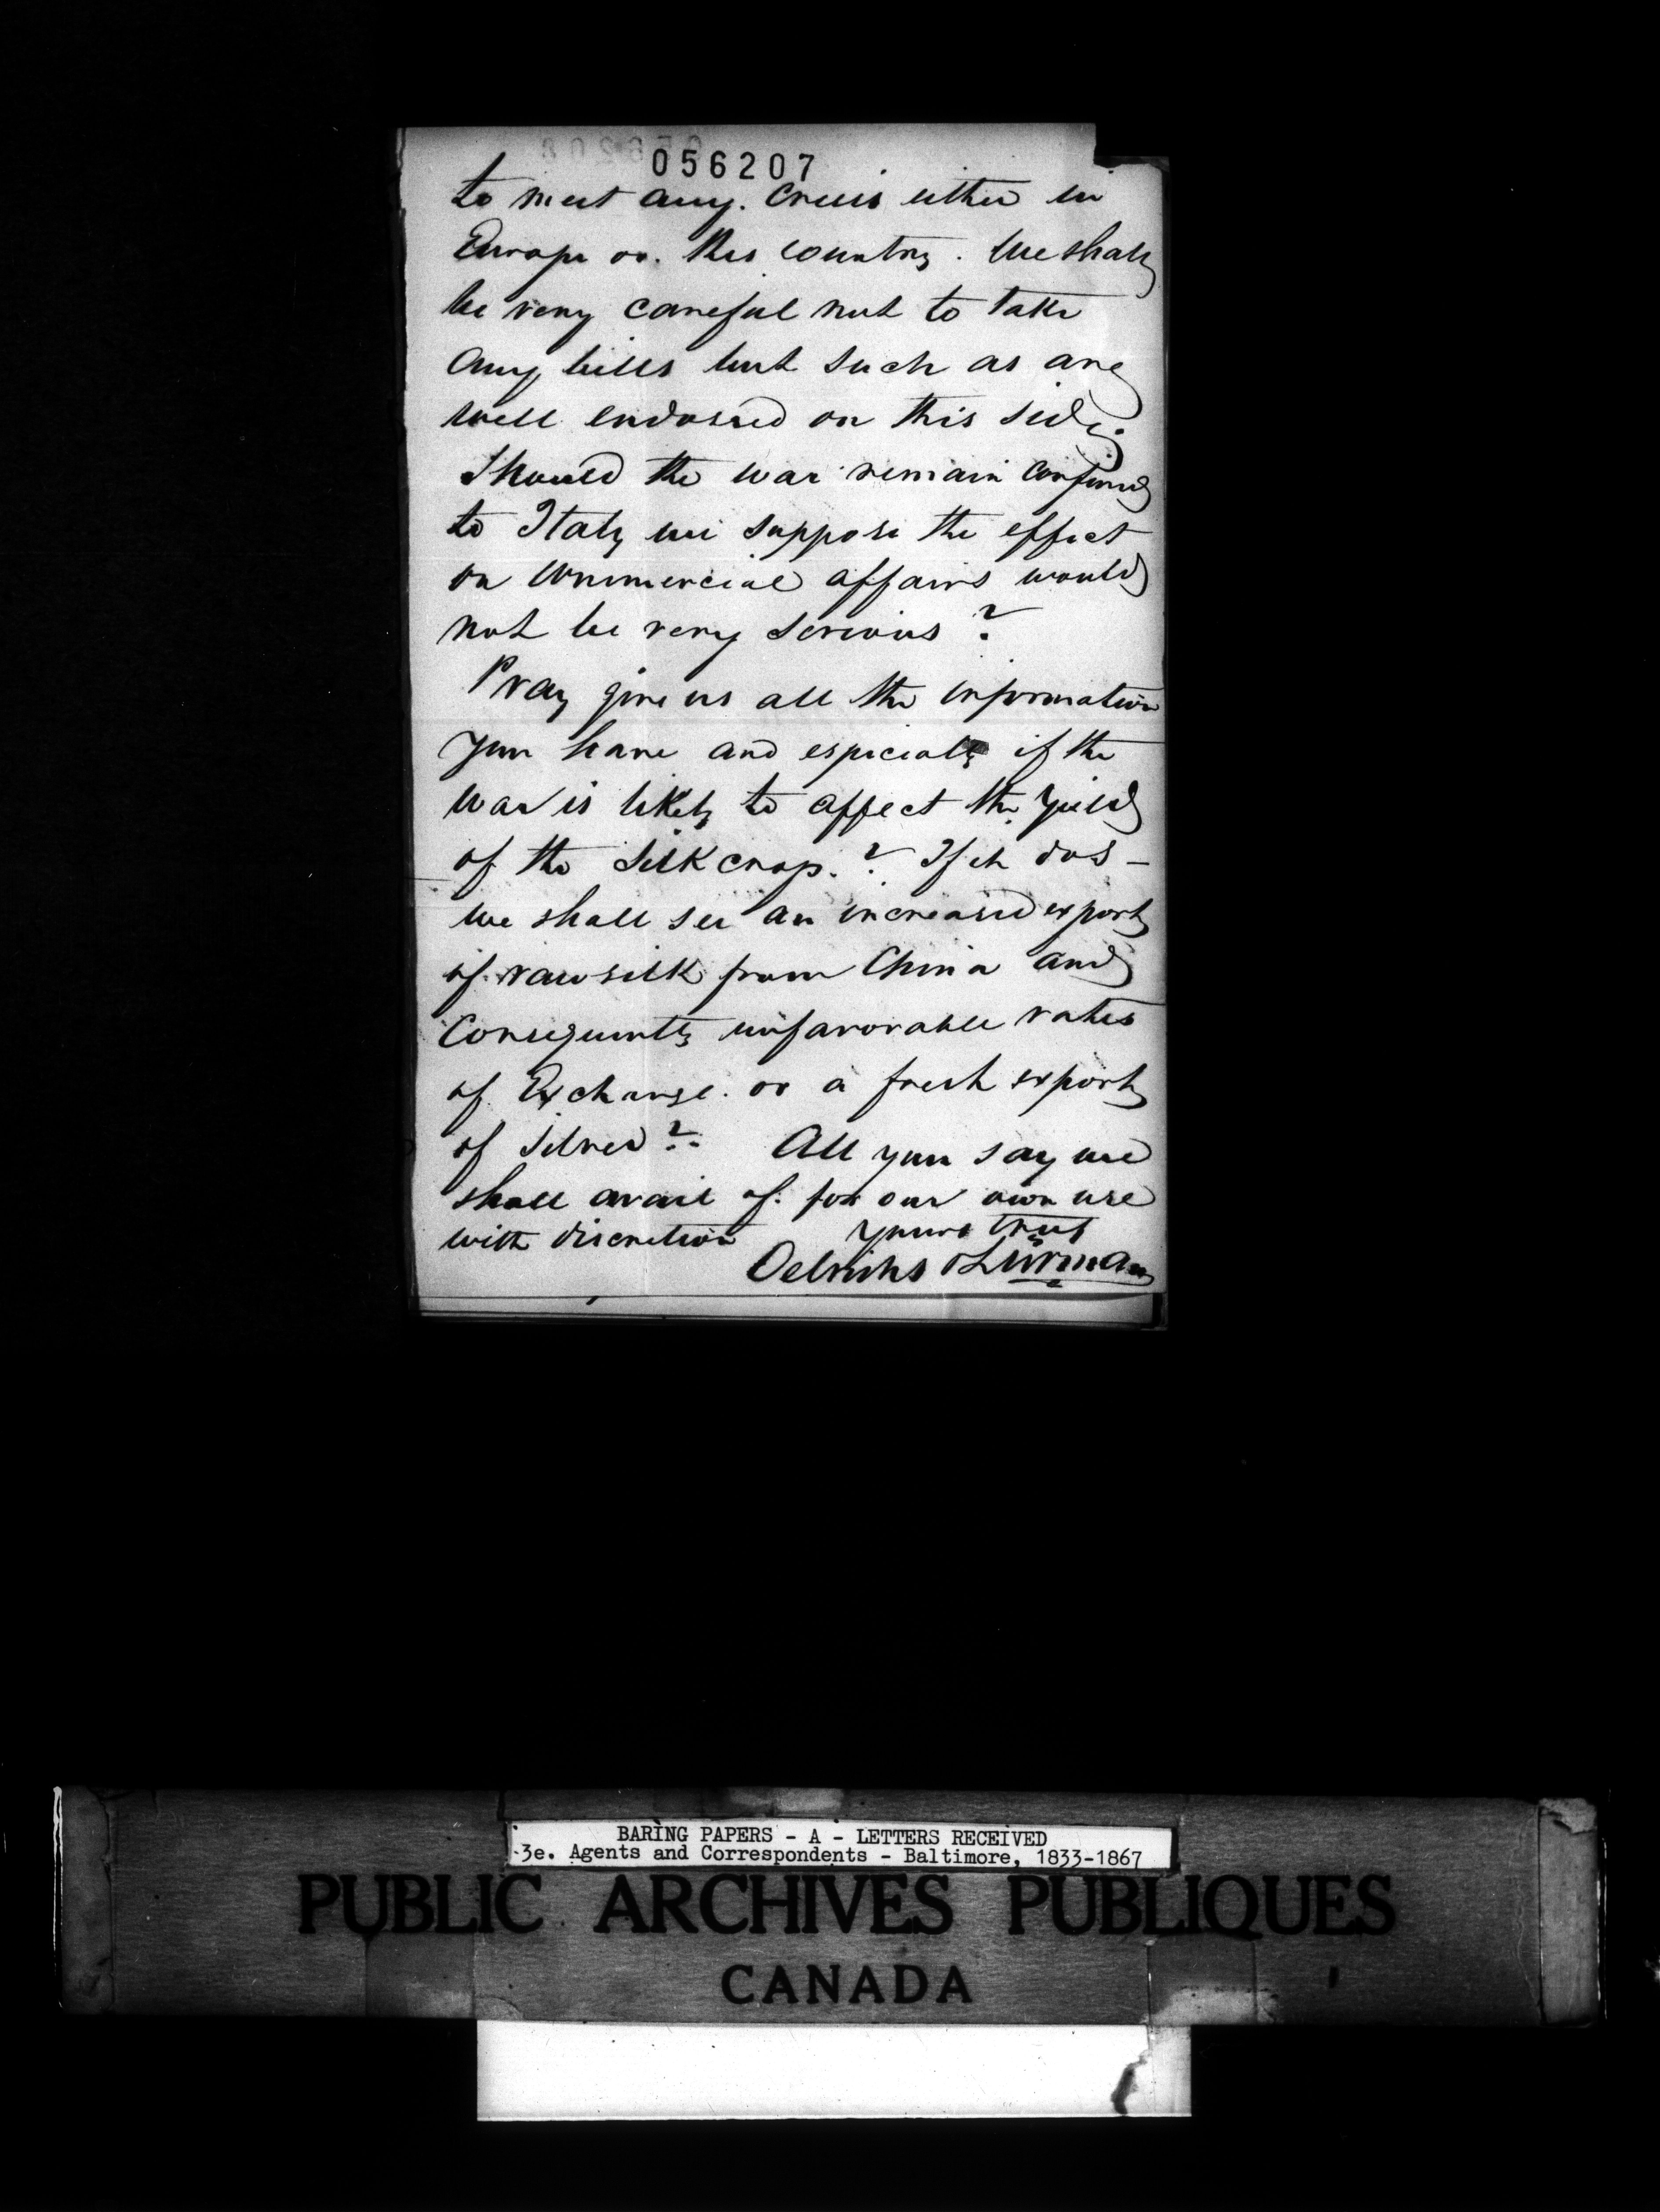 056207
to meet any. Crisis either in
Europe or. this country. We shall
be very careful not to take
any bills but such as are
well endorsed on this side.
Should the war remain confined
to Italy we suppose the effect
on commercial affairs would
not be very serious?
Pray give us all the information
you have and especially if the
war is likely to affect the yield
of the Silk crop.? If it does -
we shall see an increased export
of. raw silk from China and
Consequently unfavorable rates
of Exchange. or a fresh export
of Silver?
All you say we
shall avail of. for our own use
with discretion
Yours truly
Oelrichs & Lürman
BARING PAPERS - A - LETTERS RECEIVED
3e. Agents and Correspondents - Baltimore, 1833-1867
PUBLIC ARCHIVES PUBLIQUES
CANADA